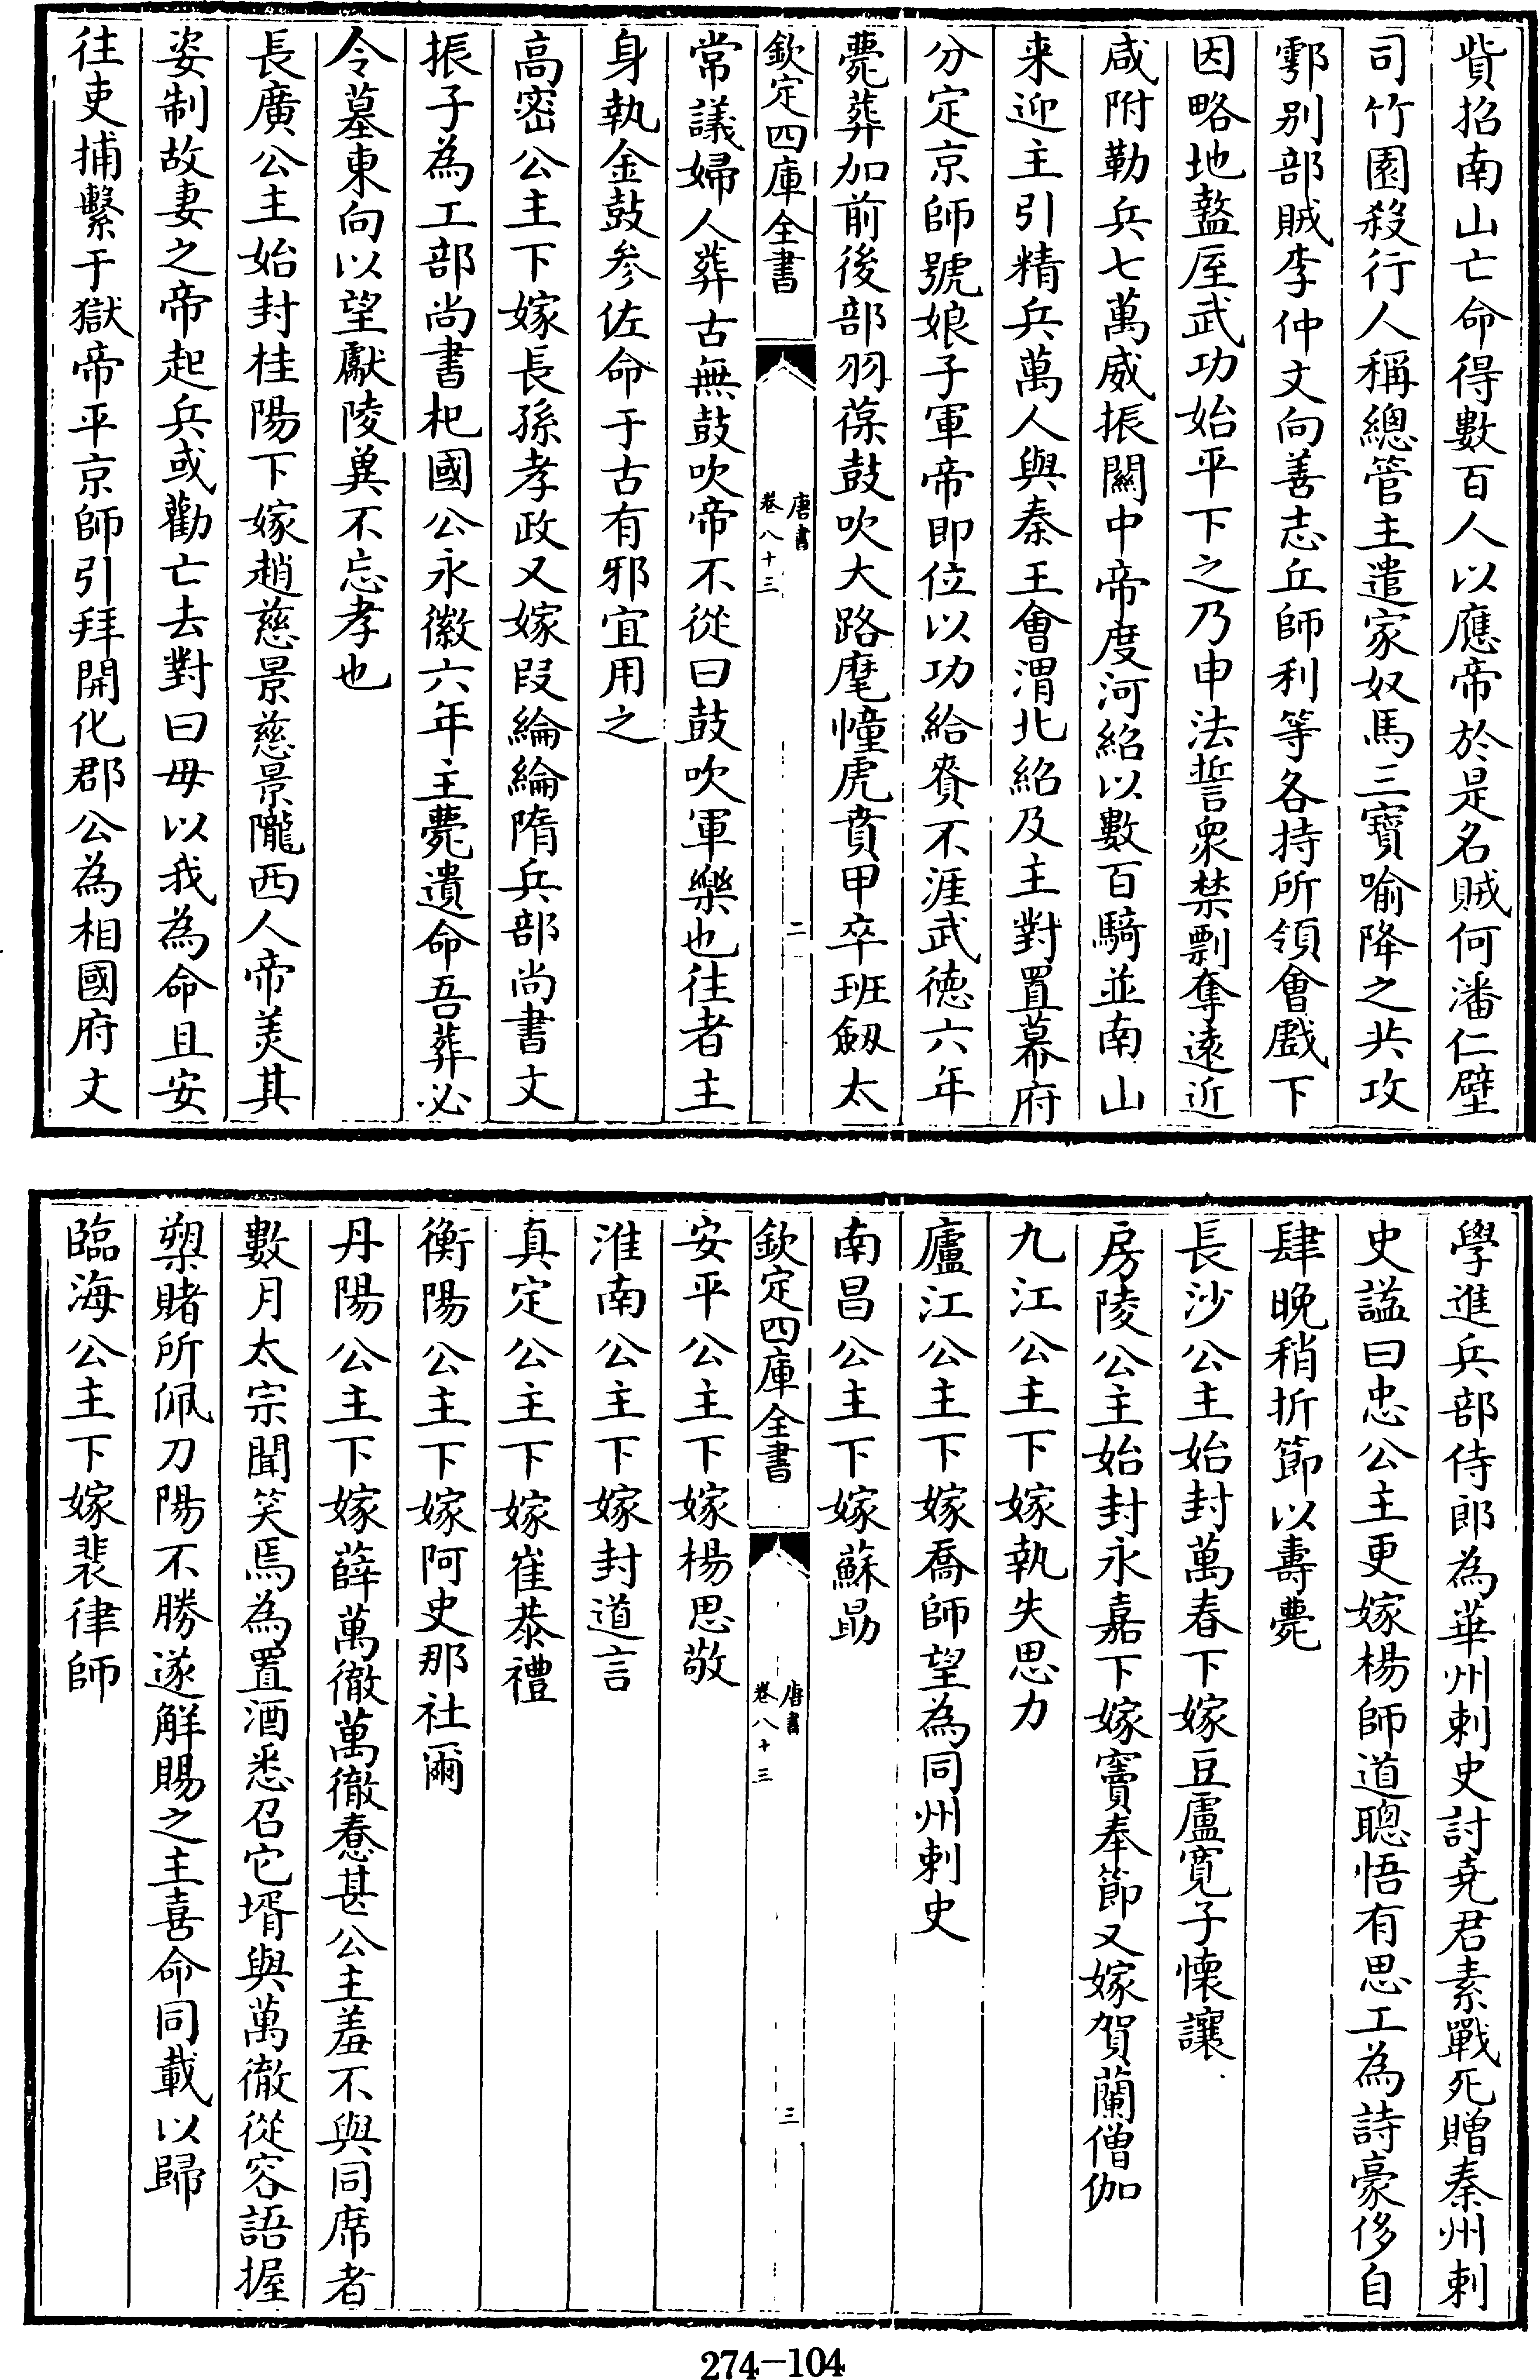 貲招南山亡命得數百人以應帝於是名賊何潘仁壁
司竹園殺行人稱總管主遣家奴馬三寶喻降之共攻
鄠别部賊李仲文向善志丘師利等各持所領會戲下
因略地盩厔武功始平下之乃申法誓衆禁剽奪遠近
咸附勒兵七萬威振關中帝度河紹以數百騎並南山
来迎主引精兵萬人與秦王會渭北紹及主對置幕府
分定京師號娘子軍帝即位以功給賚不涯武徳六年
薨葬加前後部羽葆鼓吹大路麾幢虎賁甲卒班劔太
欽定四庫全書
唐書
卷八十三
二
常議婦人葬古無鼓吹帝不從曰鼓吹軍樂也往者主
身執金鼓参佐命于古有邪宜用之
高密公主下嫁長孫孝政又嫁叚綸綸隋兵部尚書文
振子為工部尚書杞國公永徽六年主薨遺命吾葬必
令墓東向以望獻陵冀不忘孝也
長廣公主始封桂陽下嫁趙慈景慈景隴西人帝美其
姿制故妻之帝起兵或勸亡去對曰毋以我為命且安
往吏捕繫于獄帝平京師引拜開化郡公為相國府文
學進兵部侍郎為華州刺史討堯君素戰死贈秦州刺
史謚曰忠公主更嫁楊師道聰悟有思工為詩豪侈自
肆晚稍折節以壽薨
長沙公主始封萬春下嫁豆盧寛子懐讓
房陵公主始封永嘉下嫁竇奉節又嫁賀蘭僧伽
九江公主下嫁執失思力
廬江公主下嫁喬師望為同州刺史
南昌公主下嫁蘇勗
欽定四庫全書
唐書
卷八十三
三
安平公主下嫁楊思敬
淮南公主下嫁封道言
真定公主下嫁崔恭禮
衡陽公主下嫁阿史那社爾
丹陽公主下嫁薛萬徹萬徹惷甚公主羞不與同席者
數月太宗聞笑焉為置酒悉召它壻與萬徹從容語握
槊賭所佩刀陽不勝遂解賜之主喜命同載以歸
臨海公主下嫁裴律師
274-104